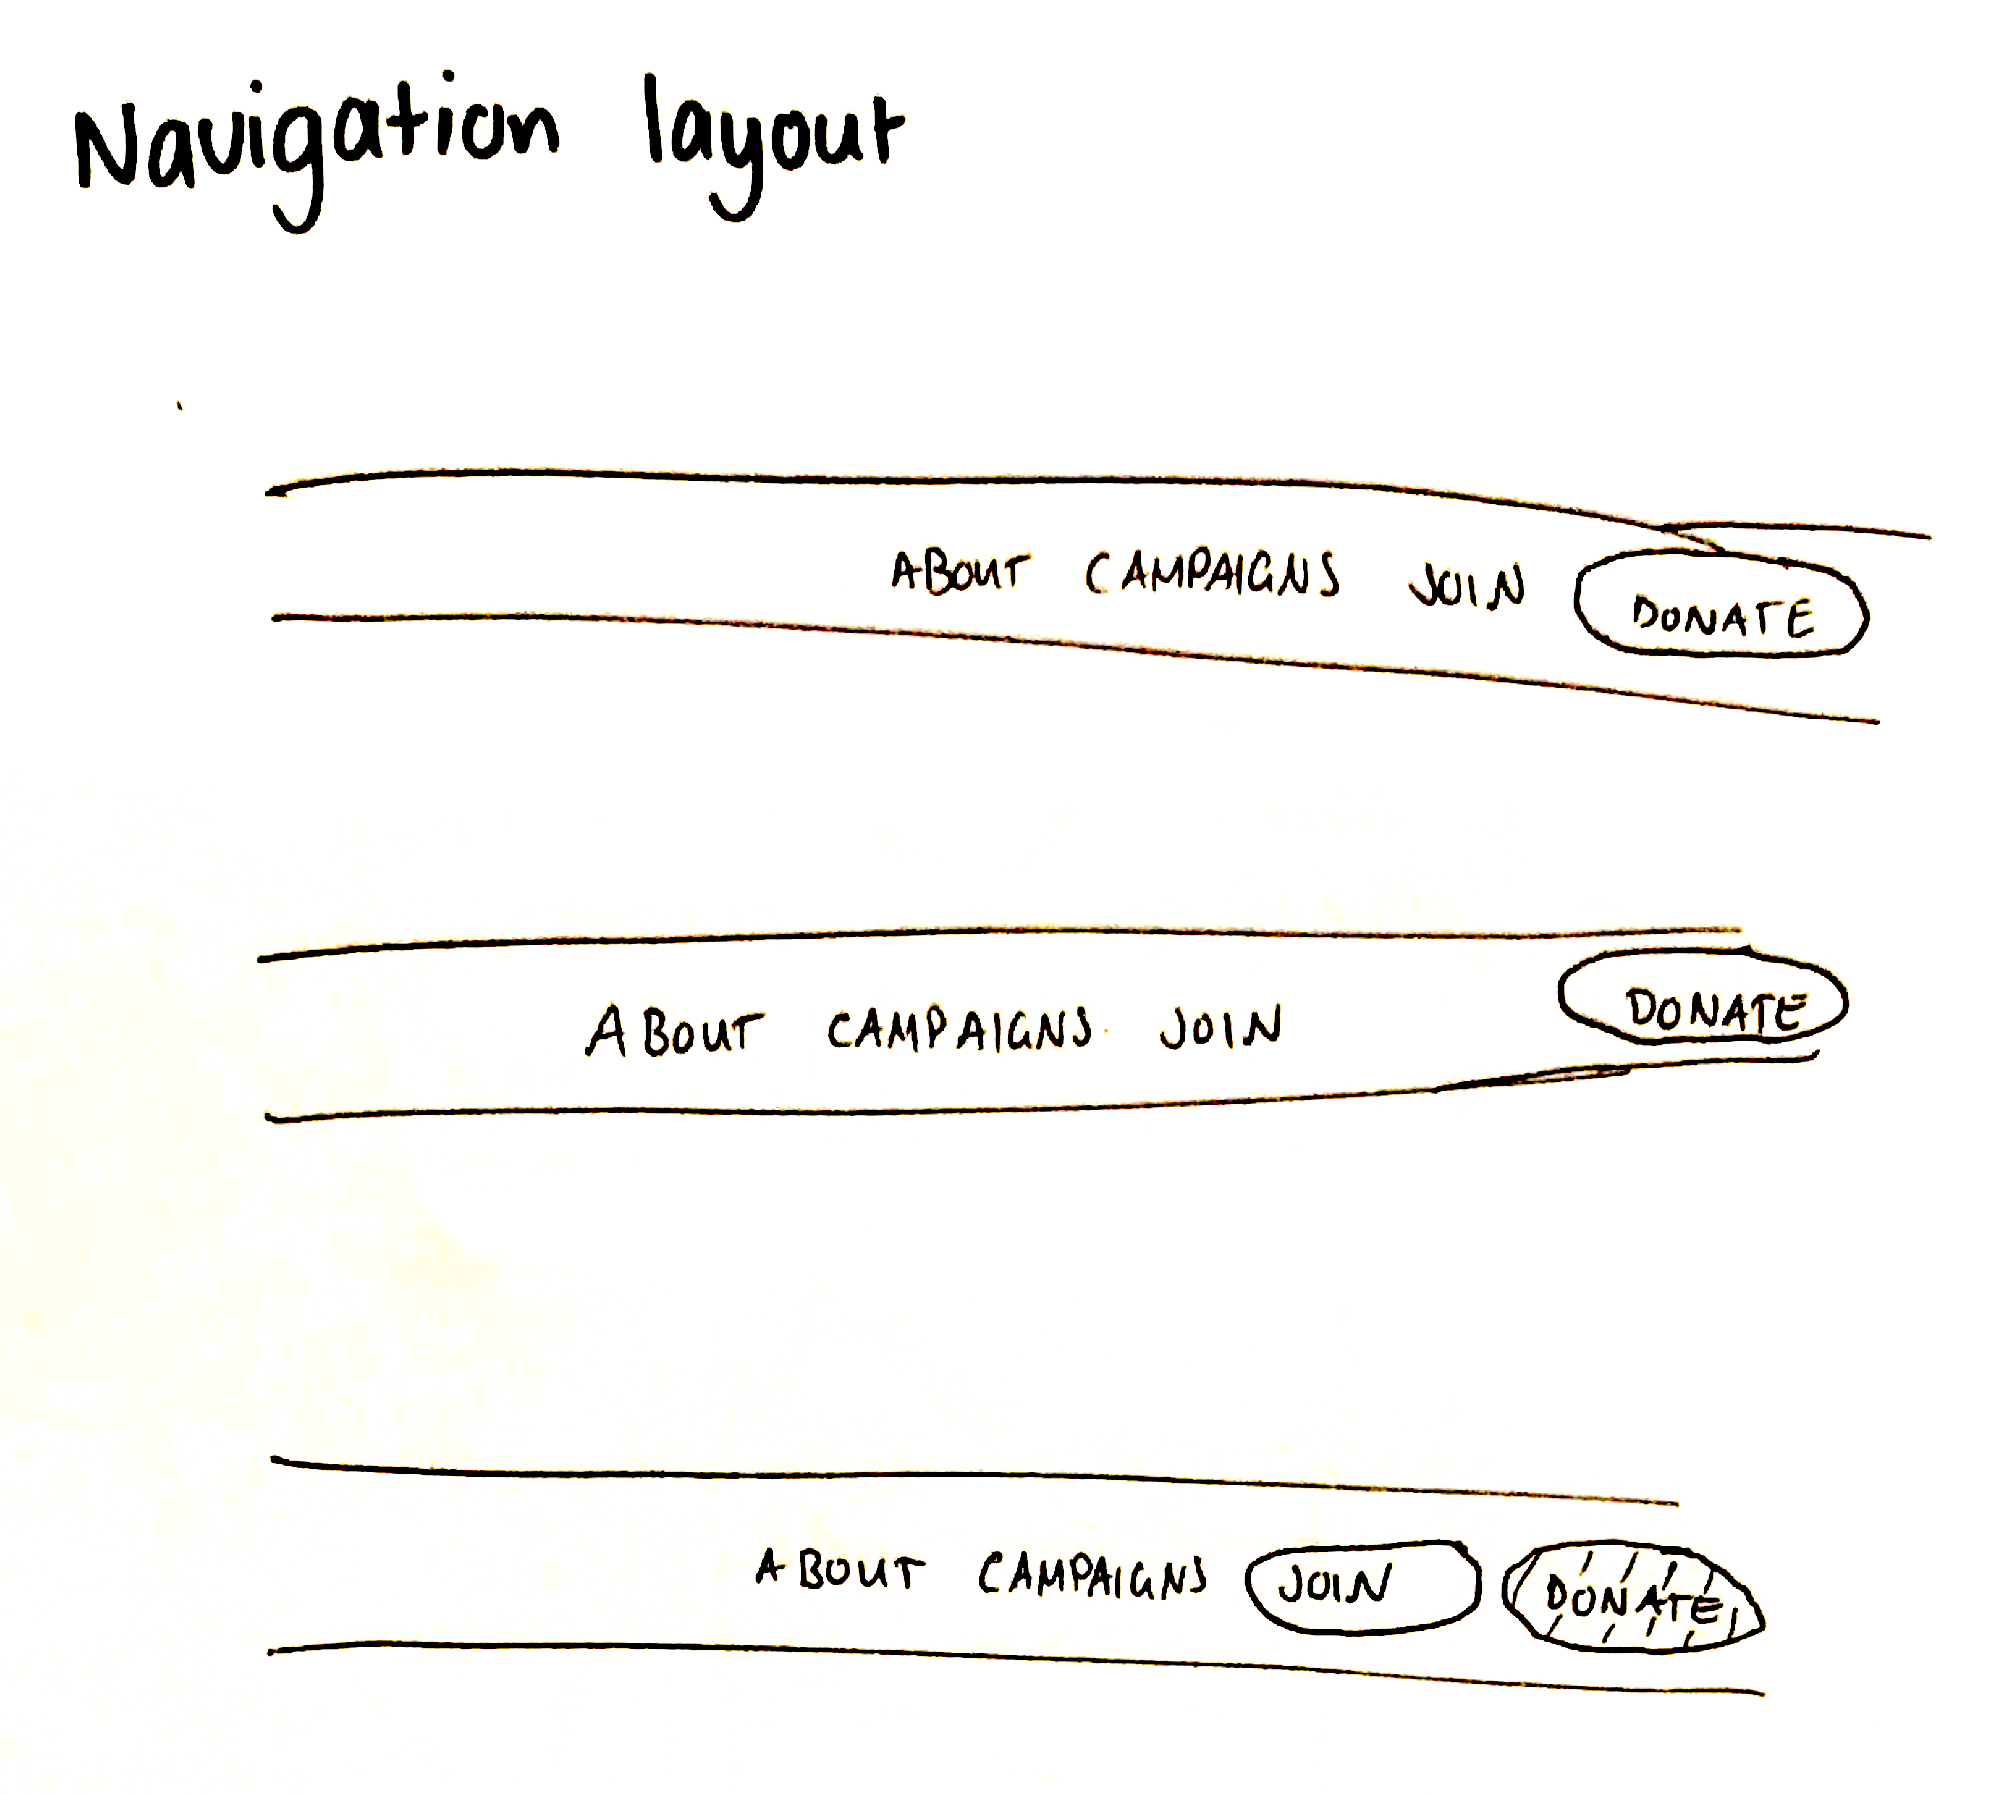 Navigation layout
ABOUT CAMPAIGNS JOIN DONATE
ABOUT CAMPAIGNS JOIN DONATE
ABOUT CAMPAIGNS JOIN DONATE